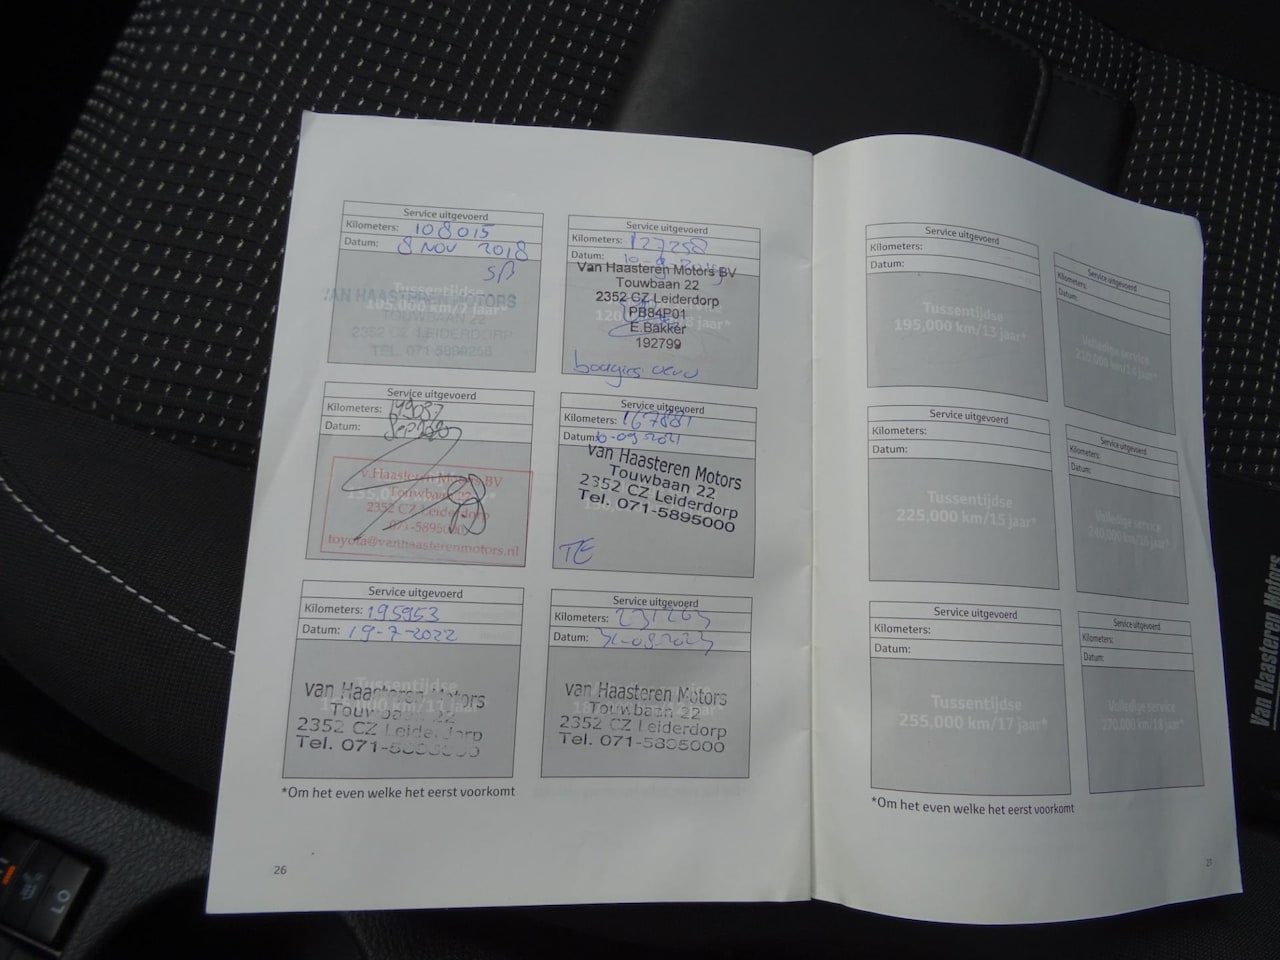 Service uitgevoerd
Kilometers: 108015
Datum: 8 NOV 2018
SB
Tussentijdse
105,000 km/7 jaar*
VAN HAASTEREN MOTORS
TOUWBAAN 22
2352 CZ LEIDERDORP
TEL. 071-5899256
Service uitgevoerd
Kilometers: 127258
Datum:
Van Haasteren Motors BV
Touwbaan 22
2352 CZ Leiderdorp
PB84P01
E.Bakker
192799
Service uitgevoerd
Kilometers:
Datum: Sep 2020
v.Haasteren Motors BV
Touwbaan 22
2352 CZ Leiderdorp
071-5895000
toyota@vanhaasterenmotors.nl
Service uitgevoerd
Kilometers: 167881
Datum: 6-09-2021
van Haasteren Motors
Touwbaan 22
2352 CZ Leiderdorp
Tel. 071-5895000
TE
Service uitgevoerd
Kilometers: 195953
Datum: 19-7-2022
Tussentijdse
van Haasteren Motors
Touwbaan 22
2352 CZ Leiderdorp
Tel. 071-5895000
Service uitgevoerd
Kilometers: 231263
Datum: 31-08-2023
van Haasteren Motors
Touwbaan 22
2352 CZ Leiderdorp
Tel. 071-5895000
*Om het even welke het eerst voorkomt
26
Service uitgevoerd
Kilometers:
Datum:
Tussentijdse
195,000 km/13 jaar*
Service uitgevoerd
Kilometers:
Datum:
Volledige service
210,000 km/14 jaar*
Service uitgevoerd
Kilometers:
Datum:
Tussentijdse
225,000 km/15 jaar*
Service uitgevoerd
Kilometers:
Datum:
Volledige service
240,000 km/16 jaar*
Service uitgevoerd
Kilometers:
Datum:
Tussentijdse
255,000 km/17 jaar*
Service uitgevoerd
Kilometers:
Datum:
Volledige service
270,000 km/18 jaar*
*Om het even welke het eerst voorkomt
Van Haasteren Motors
LO